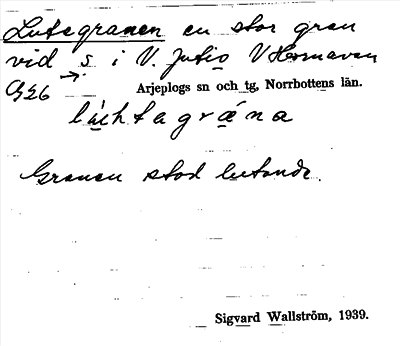 Lutagranen en stor gran
vid s. i V. Jutis V Hornavan
Arjeplogs sn och tg, Norrbottens län.
Granen stod lutande.
Sigvard Wallström, 1939.